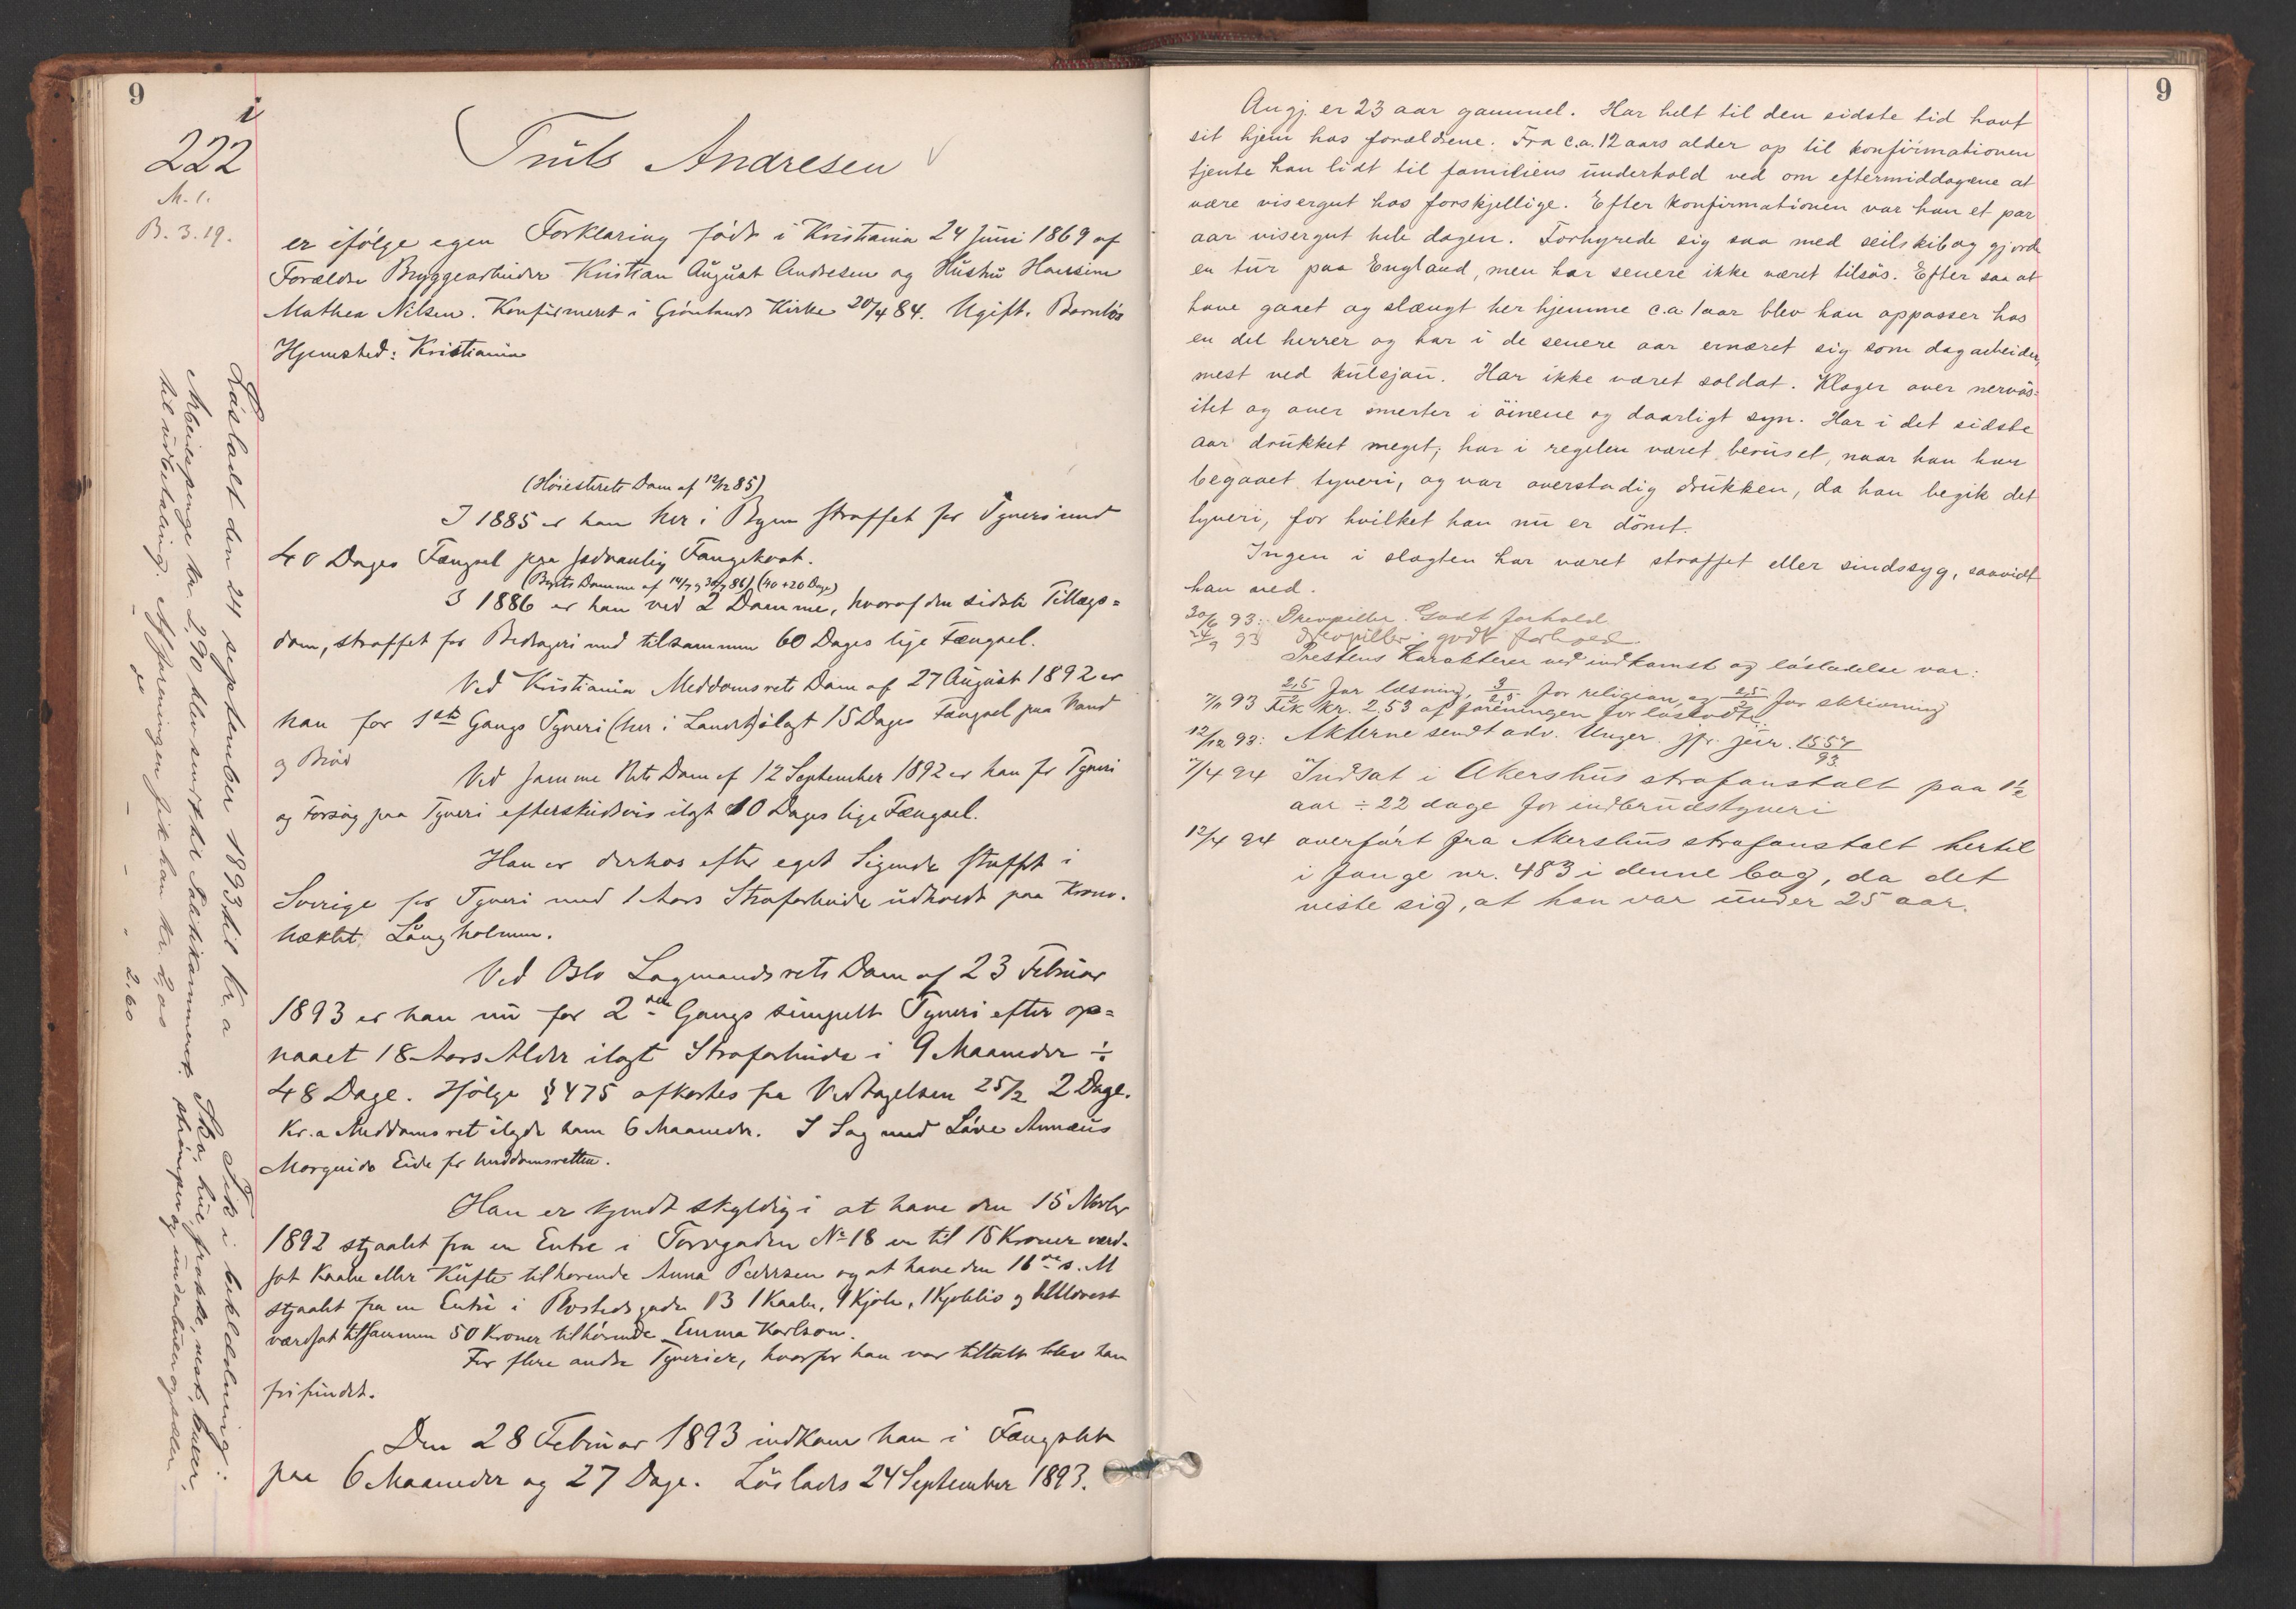 9
i
222
M. 1.
B. 3. 19.
Truls Andresen
er ifølge egen Forklaring född i Kristiania 24 Juni 1869 af
Forældre Bryggearbeider Kristian August Andresen og Hustru Hansine
Mathea Nilsen. Konfirmeret i Grønlands Kirke 20/4 84. Ugift. Barnløs
Hjemsted: Kristiania
(Høiesterets Dom af 12/12 85)
I 1885 er han her i Byen straffet for Tyveri med
40 Dages Fængsel paa sedvanlig Fangekost.
(Byrets Domme af 14/7 og 30/9 86) (40 + 20 Dage)
I 1886 er han ved 2 Domme, hvoraf den sidste Tillægs=
dom, straffet for Bedrageri med tilsammen 60 Dages lige Fængsel.
Ved Kristiania Meddomsrets Dom af 27 August 1892 er
han for 1ste Gangs Tyveri (her i Landet) ilagt 15 Dages Fængsel paa Vand
og Brød
Ved samme Rets Dom af 12 September 1892 er han for Tyveri
og Forsøg paa Tyveri efterskudsvis ilagt 10 Dages lige Fængsel.
Han er derhos efter eget Sigende straffet i
Sverige for Tyveri med 1 Aars Strafarbeide udholdt paa Krono-
hæktet Långholmen.
Ved Oslo Lagmandsrets Dom af 23 Februar
1893 er han nu for 2den Gangs simpelt Tyveri efter op=
naaet 18 Aars Alder ilagt Strafarbeide i 9 Maaneder ÷
48 Dage. Ifølge § 475 afkortes fra Vedtagelsen 25/2 2 Dage.
Kr.a Meddomsret ilagde ham 6 Maaneder. I Sag med Låve Annæus
Morguido Eide for meddomsretten.
Han er kjendt skyldig i at have den 15 Novbr
1892 stjaalet fra en Entre i Torvgaden No 18 en til 15 Kroner værd-
sat Kaabe eller Kufte tilhørende Anna Pedersen og at have den 16de s. M
stjaalet fra en Entré i Rostedsgade 13 1 Kaabe, 1 Kjole, 1 Kjoleliv og
værdsat tilsammen 50 Kroner tilhörende Emma Karlson.
For flere andre Tyverier, hvorfor han var tiltalt blev han
frifundet.
Den 28 Februar 1893 indkom han i Fængslet
paa 6 Maaneder og 27 Dage. Löslades 24 September 1893.
Lösladt den 24 september 1893 til kr.a
Arbeidspenge kr. 2,90 blev sendt kr.a Politikammer
til udbetaling. Af foreningen fik han kr. 2,00
2.60
Fik i beklædning:
Sko, hue, frakke, vest, buxer,
strömper og underbuxer
9
Angj. er 23 aar gammel. Har helt til den sidste tid havt
sit hjem hos forældrene. Fra c.a. 12 aars alder op til konfirmationen
tjente han lidt til familiens underhold ved om eftermiddagene at
være visergut hos forskjellige. Efter konfirmationen var han et par
aar visergut hele dagen. Forhyrede sig saa med seilskib og gjorde
en tur paa England, men har senere ikke været tilsös. Efter saa at
have gaaet og slængt her hjemme c.a 1 aar blev han oppasser hos
en del herrer og har i de senere aar ernæret sig som dagarbeider,
mest ved kulsjau. Har ikke været soldat. Klager over nervös=
itet og over smerter i öinene og daarligt syn. Har i det sidste
aar drukket meget; har i regelen været beruset, naar han har
begaaet tyveri, og var overstadig drukken, da han begik det
tyveri, for hvilket han nu er dömt.
Ingen i slægten har været straffet eller sindssyg, saavidt
han ved.
30/6 93: Drevpiller. Godt forhold.
24/9 93 Drevpiller. godt forhold.
Prestens Karakterer ved indkomst og lösladelse var:
2,5/2 for læsning, 3/2,5 for religion, og 2,5/2 for skrivning
7/11 93 Fik kr. 2.53 af foreningen for lösladte.
12/12 93: Akterne sendt adv. Unger. jfr. jour. 1557/93.
7/4 94 Indsat i Akershus strafanstalt paa 1 1/2
aar ÷ 22 dage for indbrudstyveri
12/4 94 overfört fra Akershus strafanstalt hertil
i fange nr. 483 i denne bog, da det
viste sig, at han var under 25 aar.